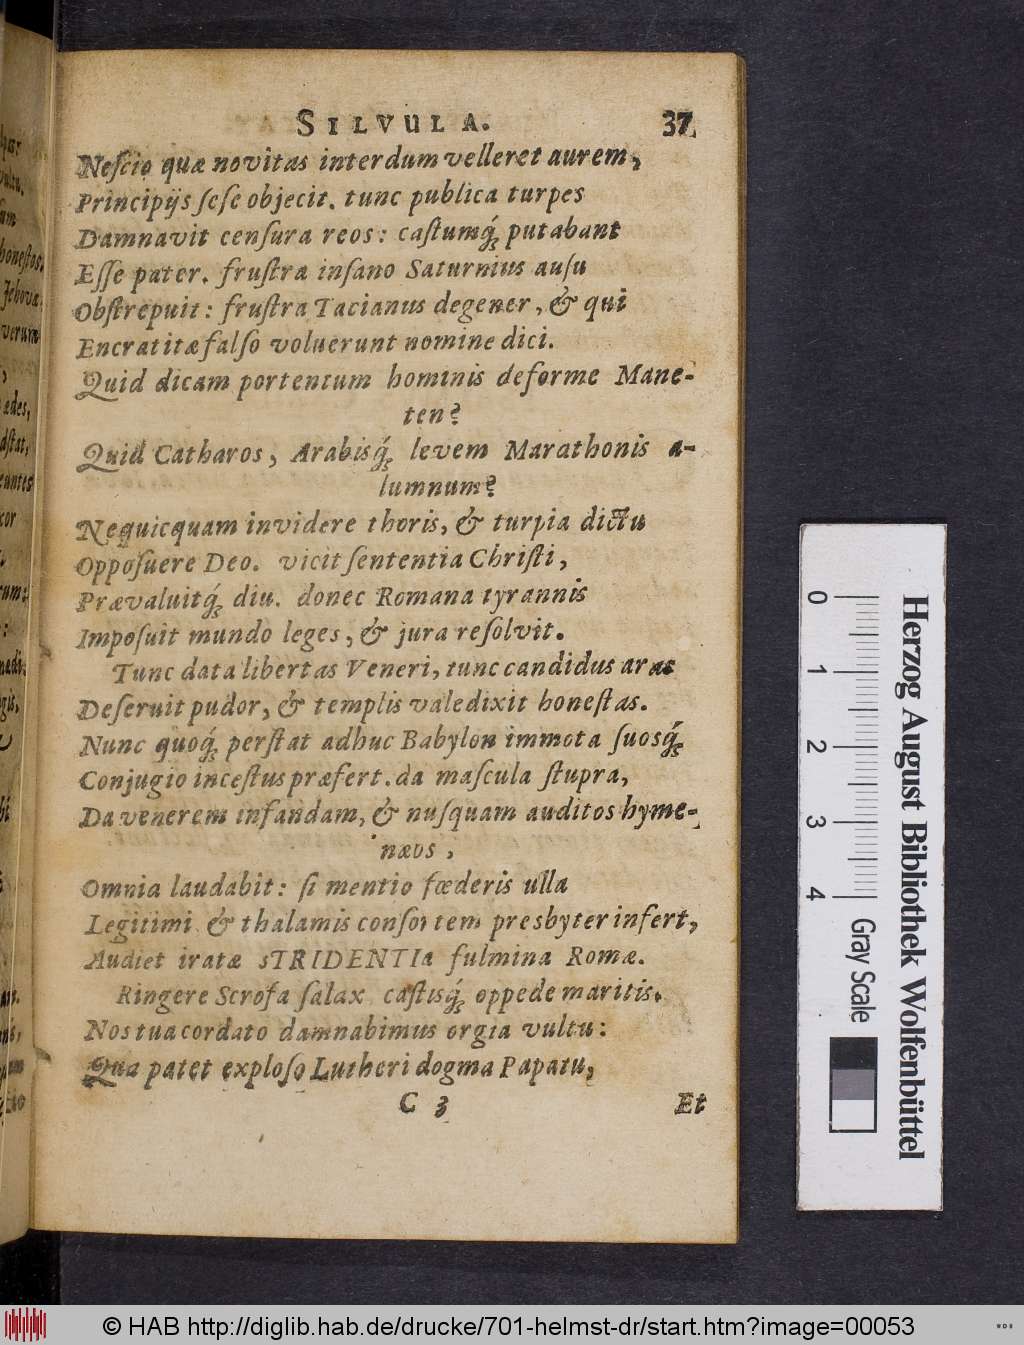 SILVULA. 37
Neſcio quæ novitas interdum velleret aurem,
Principijs ſeſe objecit. tunc publica turpes
Damnavit cenſura reos: caſtumq́; putabant
Eſſe pater. fruſtra inſano Saturnius auſu
Obſtrepuit: fruſtra Tacianus degener, & qui
Encratitæ falſo voluerunt nomine dici.
Quid dicam portentum hominis deforme Mane-
ten?
Quid Catharos, Arabisq́; levem Marathonis a-
lumnum?
Nequicquam invidere thoris, & turpia dictu
Oppoſuere Deo. vicit ſententia Chriſti,
Prævaluitq́; diu. donec Romana tyrannis
Impoſuit mundo leges, & jura reſolvit.
Tunc data libertas Veneri, tunc candidus aras
Deſeruit pudor, & templis valedixit honeſtas.
Nunc quoq́; perſtat adhuc Babylon immota ſuosq́;
Conjugio inceſtus præfert. da maſcula ſtupra,
Da venerem infandam, & nuſquam auditos hyme-
næos,
Omnia laudabit: ſi mentio fœderis ulla
Legitimi & thalamis conſortem presbyter infert,
Audiet iratæ sTRIDENTIa fulmina Romæ.
Ringere Scrofa ſalax caſtisq́; oppede maritis.
Nos tua cordato damnabimus orgia vultu:
Qua patet exploſo Lutheri dogma Papatu,
C 3 Et
honeſtos.
Jehova
verum
ædes,
0 1 2 3 4
Herzog August Bibliothek Wolfenbüttel
Gray Scale
© HAB http://diglib.hab.de/drucke/701-helmst-dr/start.htm?image=00053